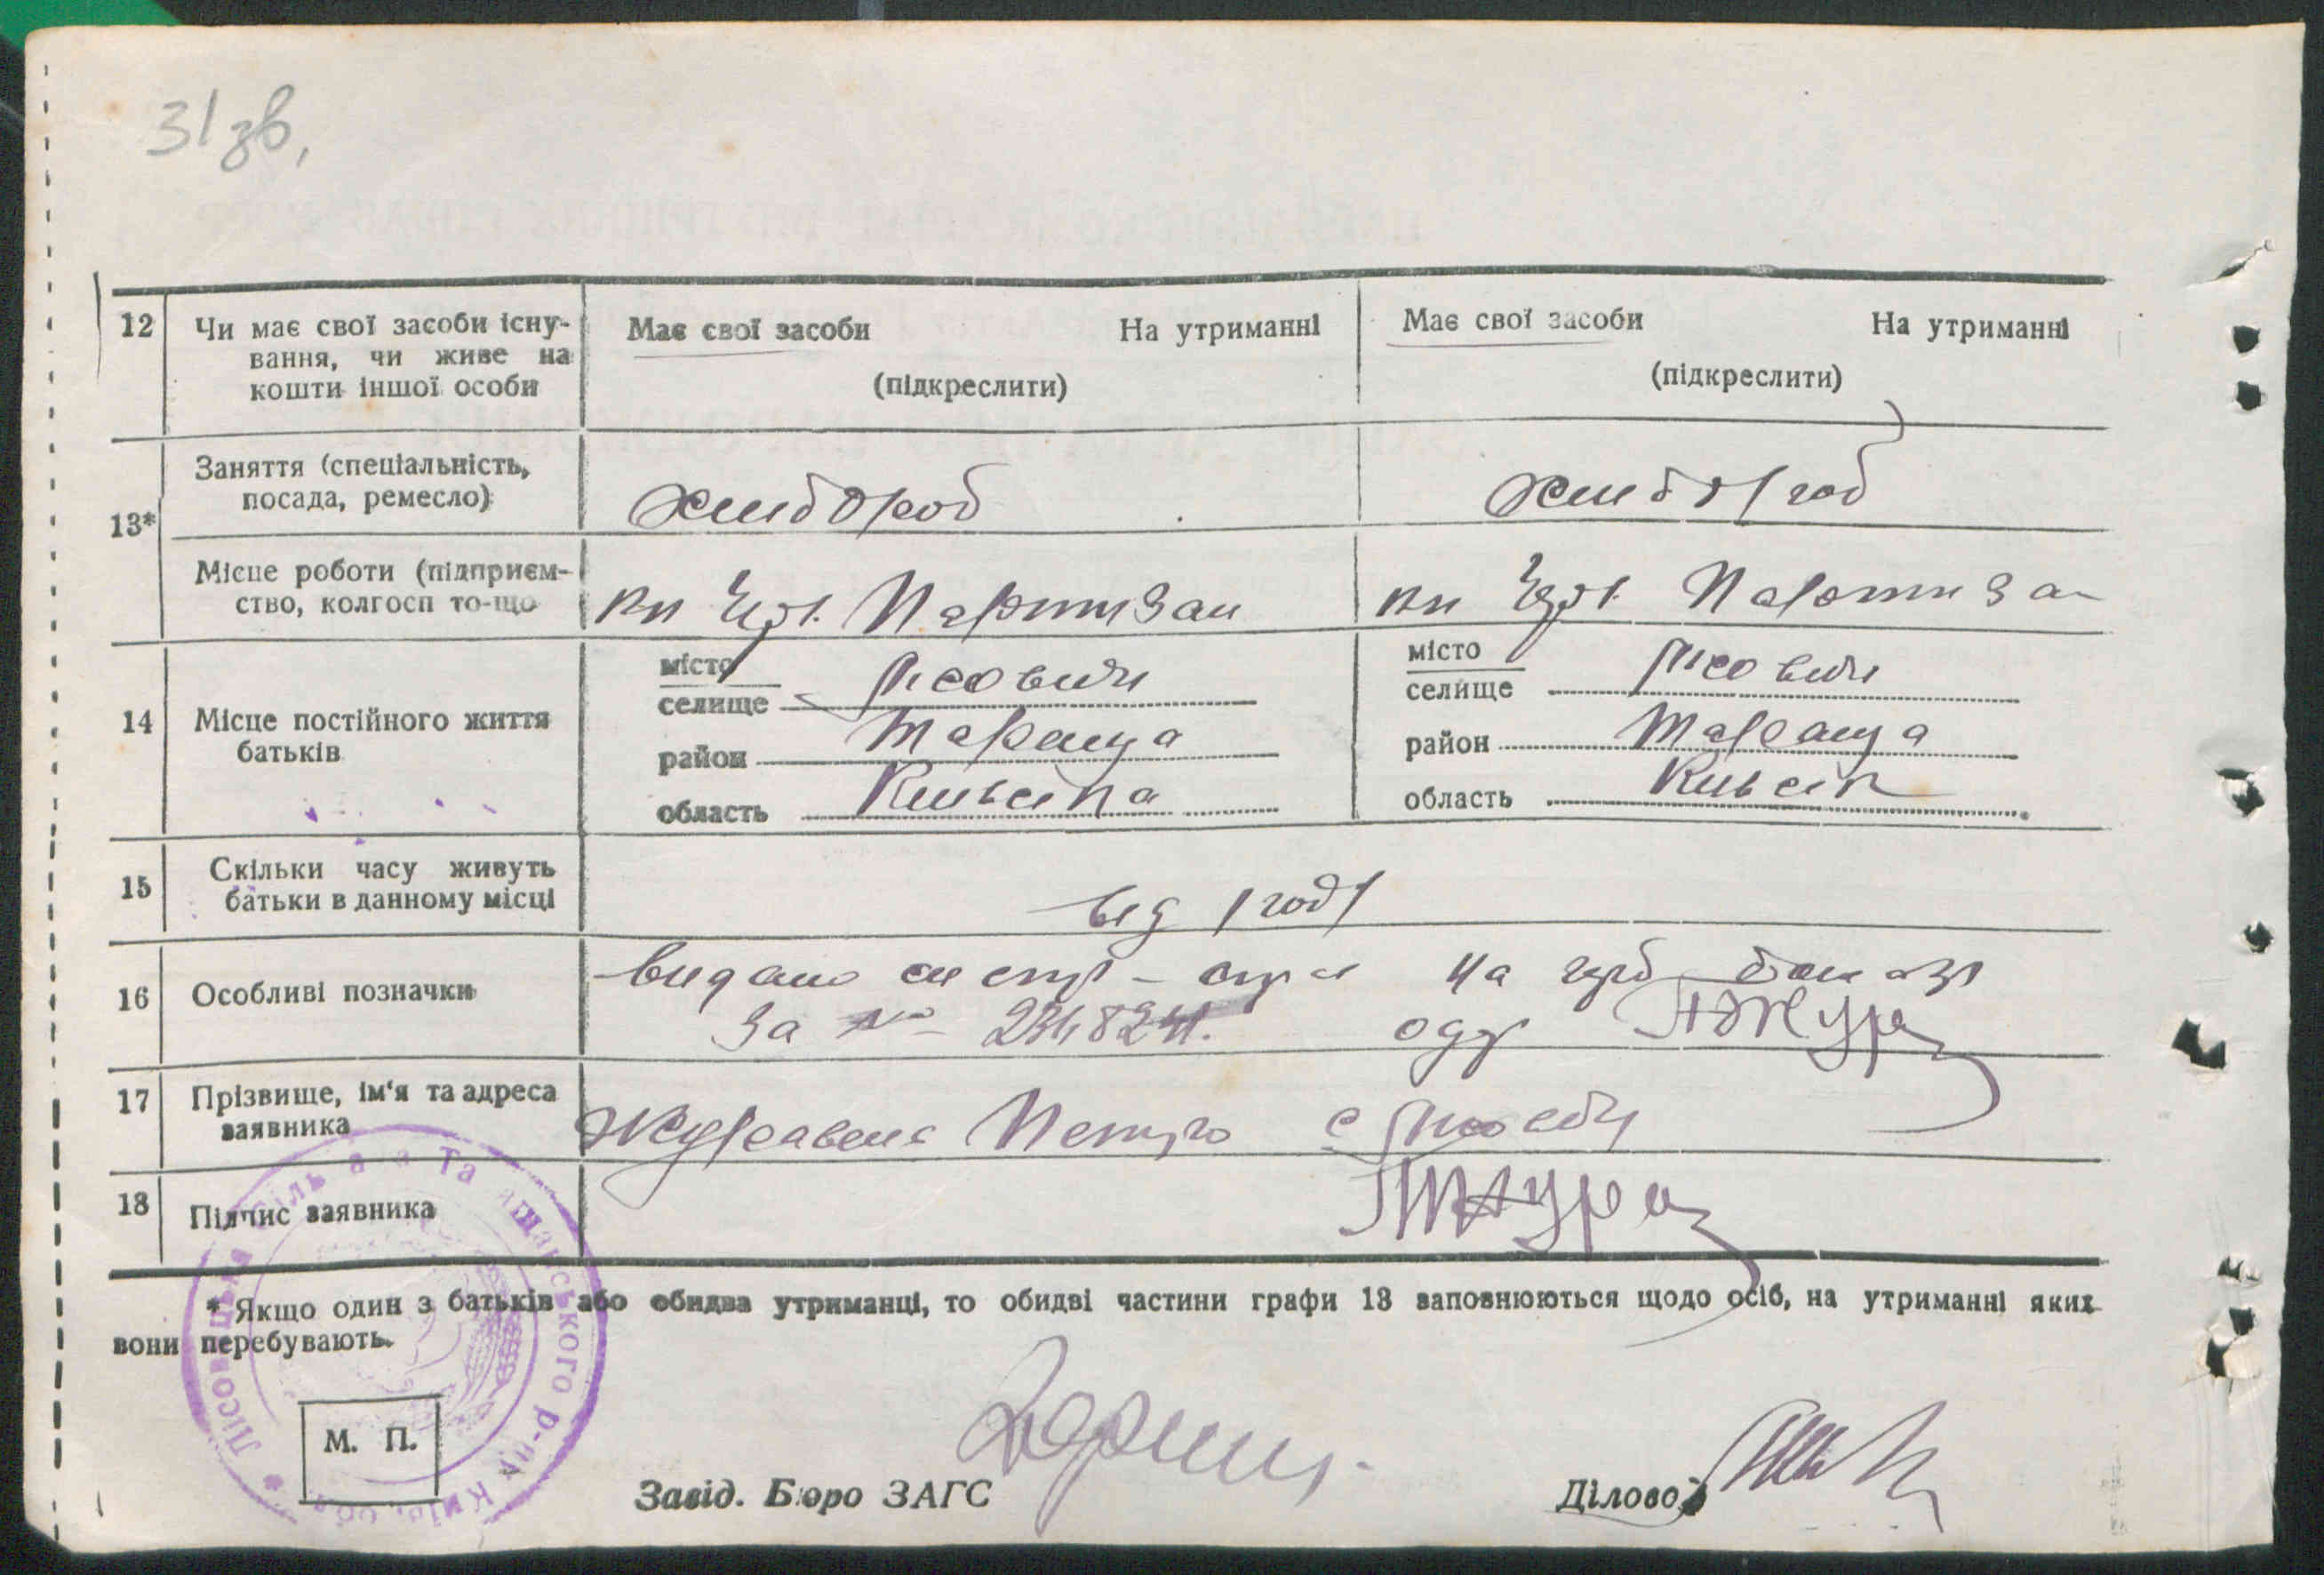 31 зв.
12 Чи має свої засоби існу-
вання, чи живе на
кошти іншої особи
Має свої засоби На утриманні
(підкреслити)
Має свої засоби На утриманні
(підкреслити)
13* Заняття (спеціальність,
посада, ремесло)
хлібороб
хлібороб
Місце роботи (підприєм-
ство, колгосп то-що
кл Черв. Партизан
кл Черв. Партизан
14 Місце постійного життя
батьків
місто
селище Лісовичи
район Тараща
область Київська
місто
селище Лісовичи
район Тараща
область Київськ
15 Скільки часу живуть
батьки в данному місці
від
16 Особливі позначки
видано на
За №
17 Прізвище, ім'я та адреса
заявника
Петро с
18 Підпис заявника
* Якщо один з батьків або обидва утриманці, то обидві частини графи 13 заповнюються щодо осіб, на утриманні яких
вони перебувають.
М. П.
Завід. Бюро ЗАГС
Діловод